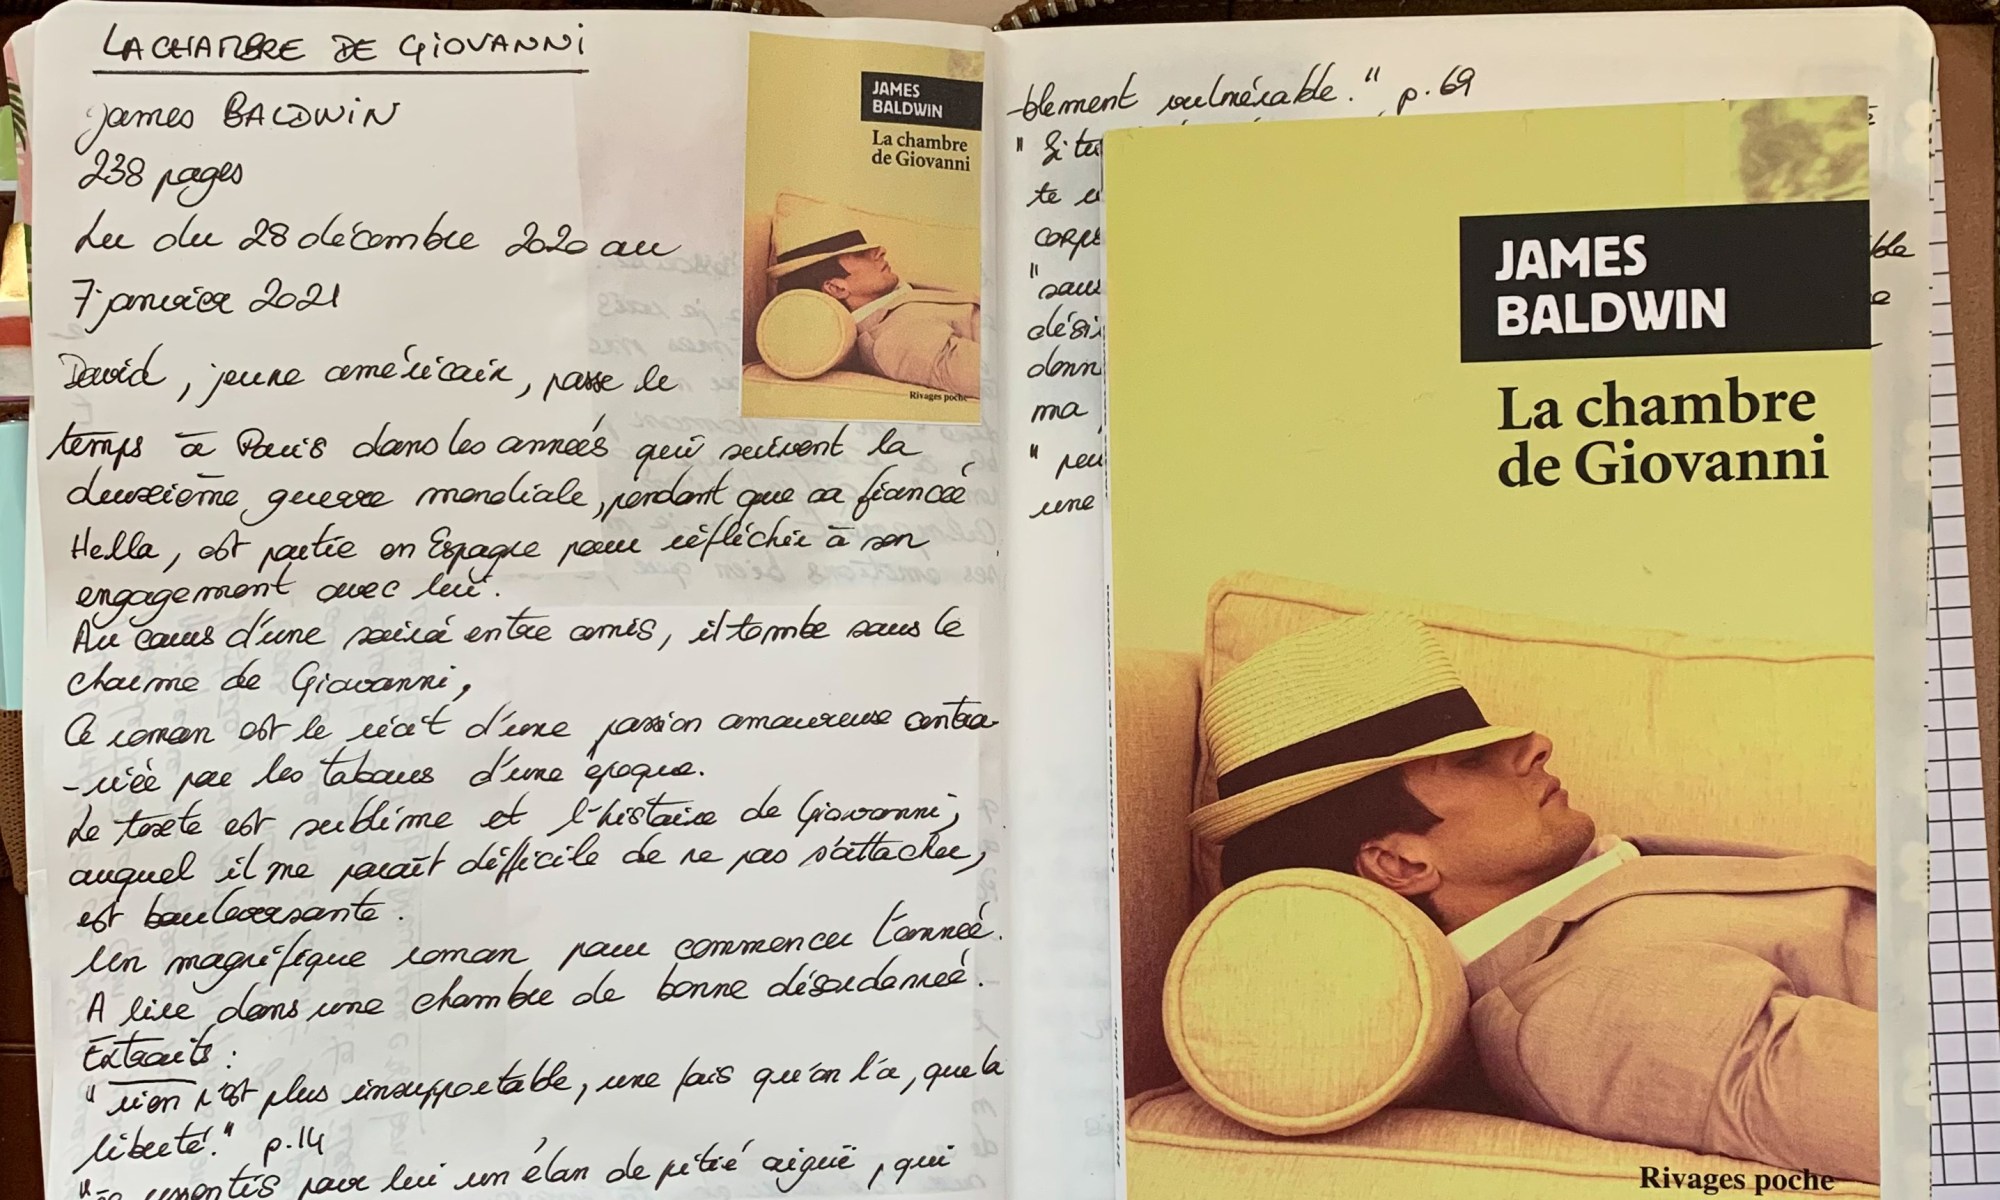 LA CHAMBRE DE GIOVANNI
James BALDWIN
238 pages
Lu du 28 décembre 2020 au
7 janvier 2021
David, jeune américain, passe le
temps à Paris dans les années qui suivent la
deuxième guerre mondiale, pendant que sa fiancée
Hella, est partie en Espagne pour réfléchir à son
engagement avec lui.
Au cours d'une soirée entre amis, il tombe sous le
charme de Giovanni,
Ce roman est le récit d'une passion amoureuse contra-
-riée par les tabous d'une époque.
Le texte est sublime et l'histoire de Giovanni,
auquel il me paraît difficile de ne pas s'attacher,
est bouleversante.
Un magnifique roman pour commencer l'année.
A lire dans une chambre de bonne désordonnée.
Extraits :
"rien n'est plus insupportable, une fois qu'on l'a, que la
liberté." p.14
ressentis pour lui un élan de pitié aiguë, qui
JAMES
BALDWIN
La chambre
de Giovanni
Rivages poche
-blement vulnérable." p.69
" Si tu
te
"sans
donn
ma
une
JAMES
BALDWIN
La chambre
de Giovanni
Rivages poche